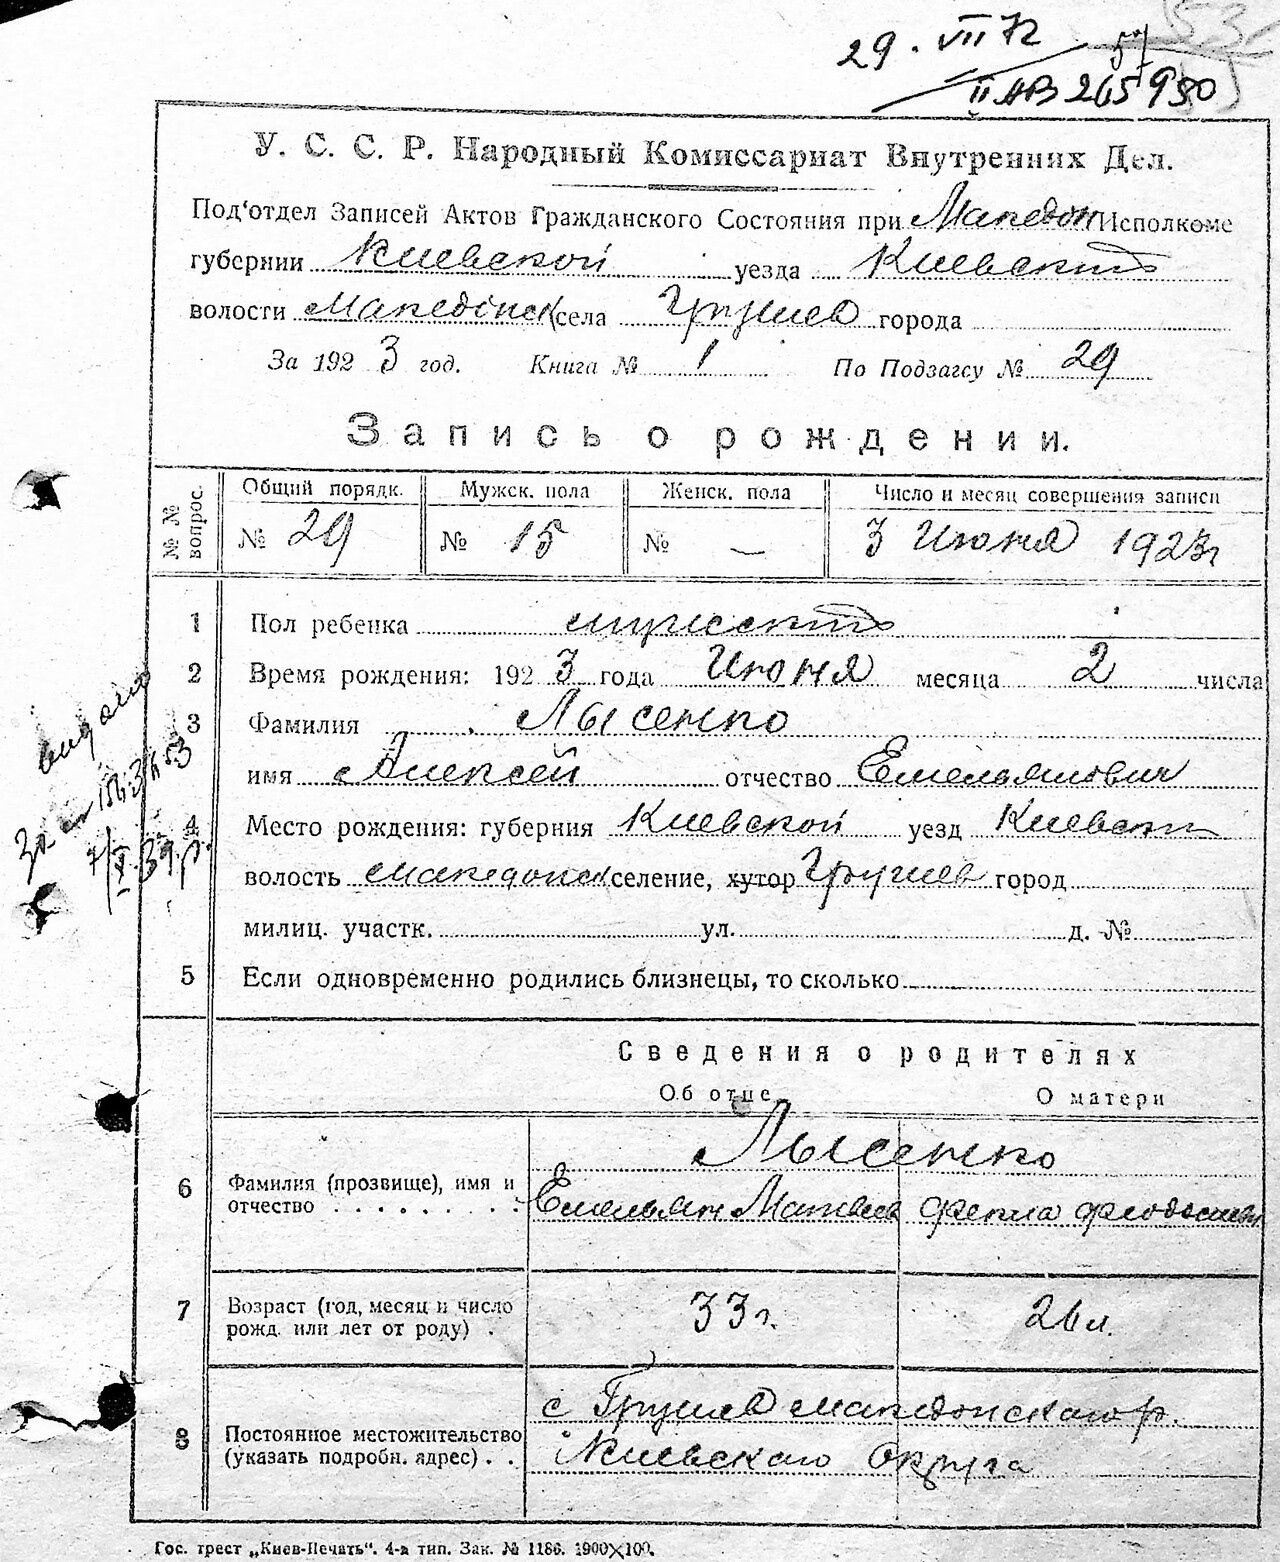 29. VII 72
II АВ 265980
У. С. С. Р. Народный Комиссариат Внутренних Дел.
Под'отдел Записей Актов Гражданского Состояния при Македон Исполкоме
губернии Киевской уезда Киевский
волости Македонск села Грушев города
За 1923 год. Книга № 1 По Подзагсу № 29
Запись о рождении.
№ № вопрос.
Общий порядк. Мужск. пола Женск. пола Число и месяц совершения записи
№ 29 № 15 № — 3 Июня 1923 г
1 Пол ребенка мужской
2 Время рождения: 1923 года Июня месяца 2 числа
3 Фамилия Лысенко
имя Алексей отчество Емельянович
4 Место рождения: губерния Киевской уезд Киевск
волость Македонск селение, хутор Грушев город
милиц. участк. ул. д. №
5 Если одновременно родились близнецы, то сколько
Сведения о родителях
Об отце О матери
Лысенко
6 Фамилия (прозвище), имя и
отчество Емельян Матвеев Фекла
7 Возраст (год, месяц и число
рожд. или лет от роду) 33 г. 26 л.
с Грушев Македонского р.
8 Постоянное местожительство
(указать подробн. адрес) Киевского Округа
Гос. трест „Киев-Печать". 4-а тип. Зак. № 1186. 1900×100.